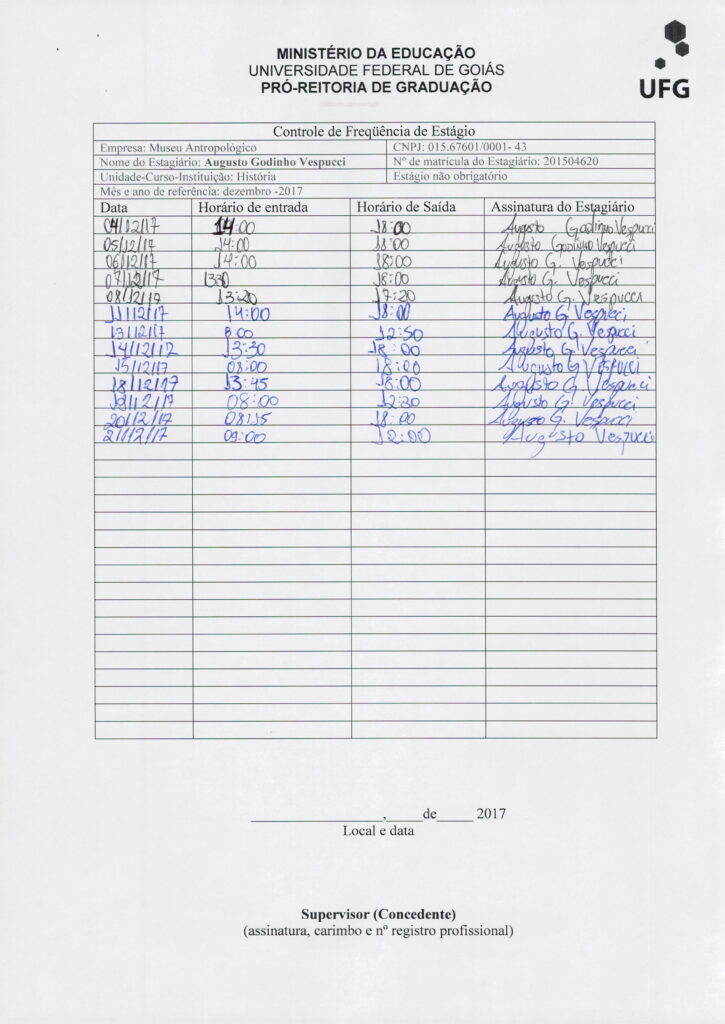 MINISTÉRIO DA EDUCAÇÃO
UNIVERSIDADE FEDERAL DE GOIÁS
PRÓ-REITORIA DE GRADUAÇÃO
UFG
Controle de Freqüência de Estágio
Empresa: Museu Antropológico CNPJ: 015.67601/0001- 43
Nome do Estagiário: Augusto Godinho Vespucci Nº de matrícula do Estagiário: 201504620
Unidade-Curso-Instituição: História Estágio não obrigatório
Mês e ano de referência: dezembro -2017
Data Horário de entrada Horário de Saída Assinatura do Estagiário
04/12/17 14:00 18:00 Augusto Godinho Vespucci
05/12/17 14:00 18:00 Augusto Godinho Vespucci
06/12/17 14:00 18:00 Augusto G. Vespucci
07/12/17 1330 18:00 Augusto G. Vespucci
08/12/17 13:20 17:20 Augusto G. Vespucci
11/12/17 14:00 18:00 Augusto G. Vespucci
13/12/17 8:00 12:50 Augusto G. Vespucci
14/12/17 13:30 18:00 Augusto G. Vespucci
15/12/17 08:00 18:00 Augusto G. Vespucci
18/12/17 13:45 18:00 Augusto G. Vespucci
19/12/17 08:00 12:30 Augusto G. Vespucci
20/12/17 08:15 18:00 Augusto G. Vespucci
21/12/17 09:00 12:00 Augusto Vespucci
____________________,_____de_____ 2017
Local e data
Supervisor (Concedente)
(assinatura, carimbo e nº registro profissional)